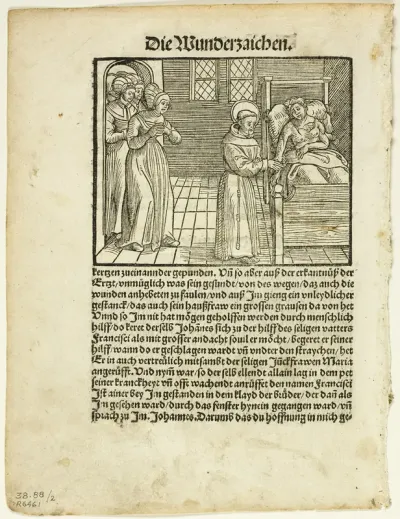 Die Wunderzaichen.
kertzen zueinannder gepunden. Vn̄ so aber auß der erkantnüß der
Ertzt/ vnmüglich was sein gesundt/ von des wegen/ daz auch die
wunden anhebeten zu faulen/ vnd auß Jm gieng ein vnleydlicher
gestanck/ das auch sein haußfraw ein grossen grausen da von het
Vnnd so Jm nit hat mögen geholffen werden durch menschlich
hilff/ do keret der selb Johānes sich zu der hilff des seligen vatters
Francisci als mit grosser andacht so vil er möcht/ begeret er seiner
hilff/ wann do er geschlagen wardt vn̄ vnter den straychen/ het
Er in auch vertreülich mitsambt der seligen Jūckfrawen Maria
angerüfft. Vnd nym̄ war/ so der selb ellendt allain lag in dem pet
seiner kranckheyt vn̄ offt wachendt anrüffet den namen Francisci
Jst ainer bey Jm gestanden in dem klayd der brüder/ der dan̄ als
Jm gesehen ward/ durch das fenster hynein gegangen ward/ vn̄
sprach zu Jm. Johannes. Darumb das du hoffnung in mich ge-
38.88/2
R6461